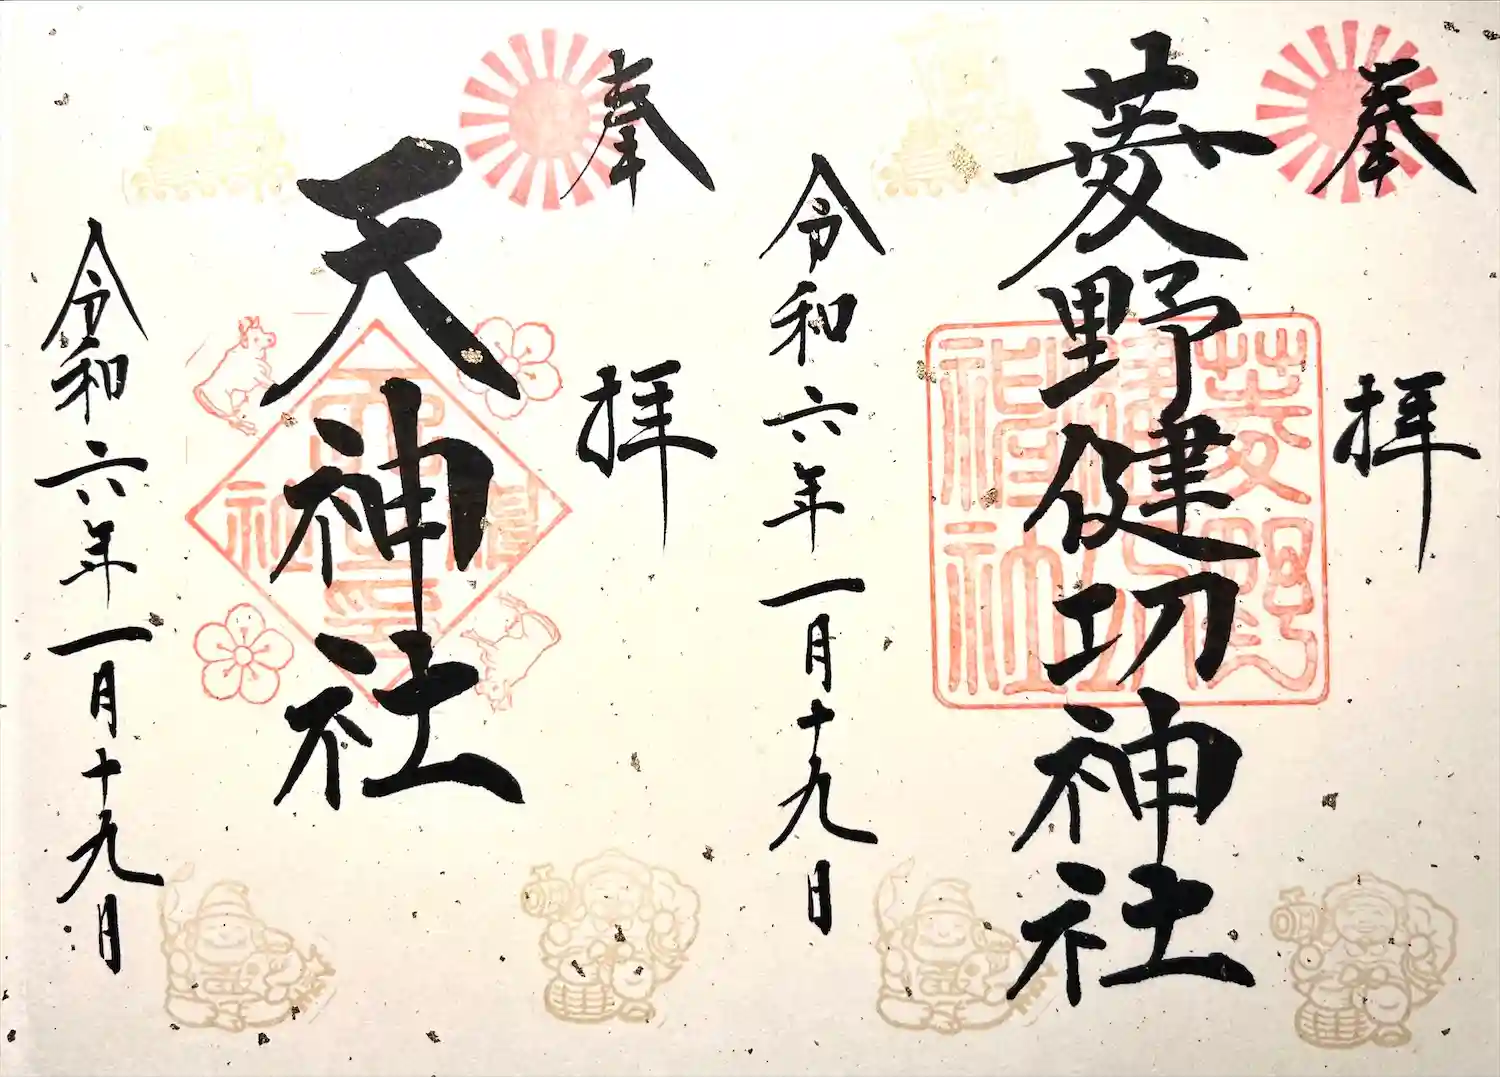 奉拝
菱野健功神社
菱野
健功
神社
令和六年一月十九日
奉拝
天神社
令和六年一月十九日